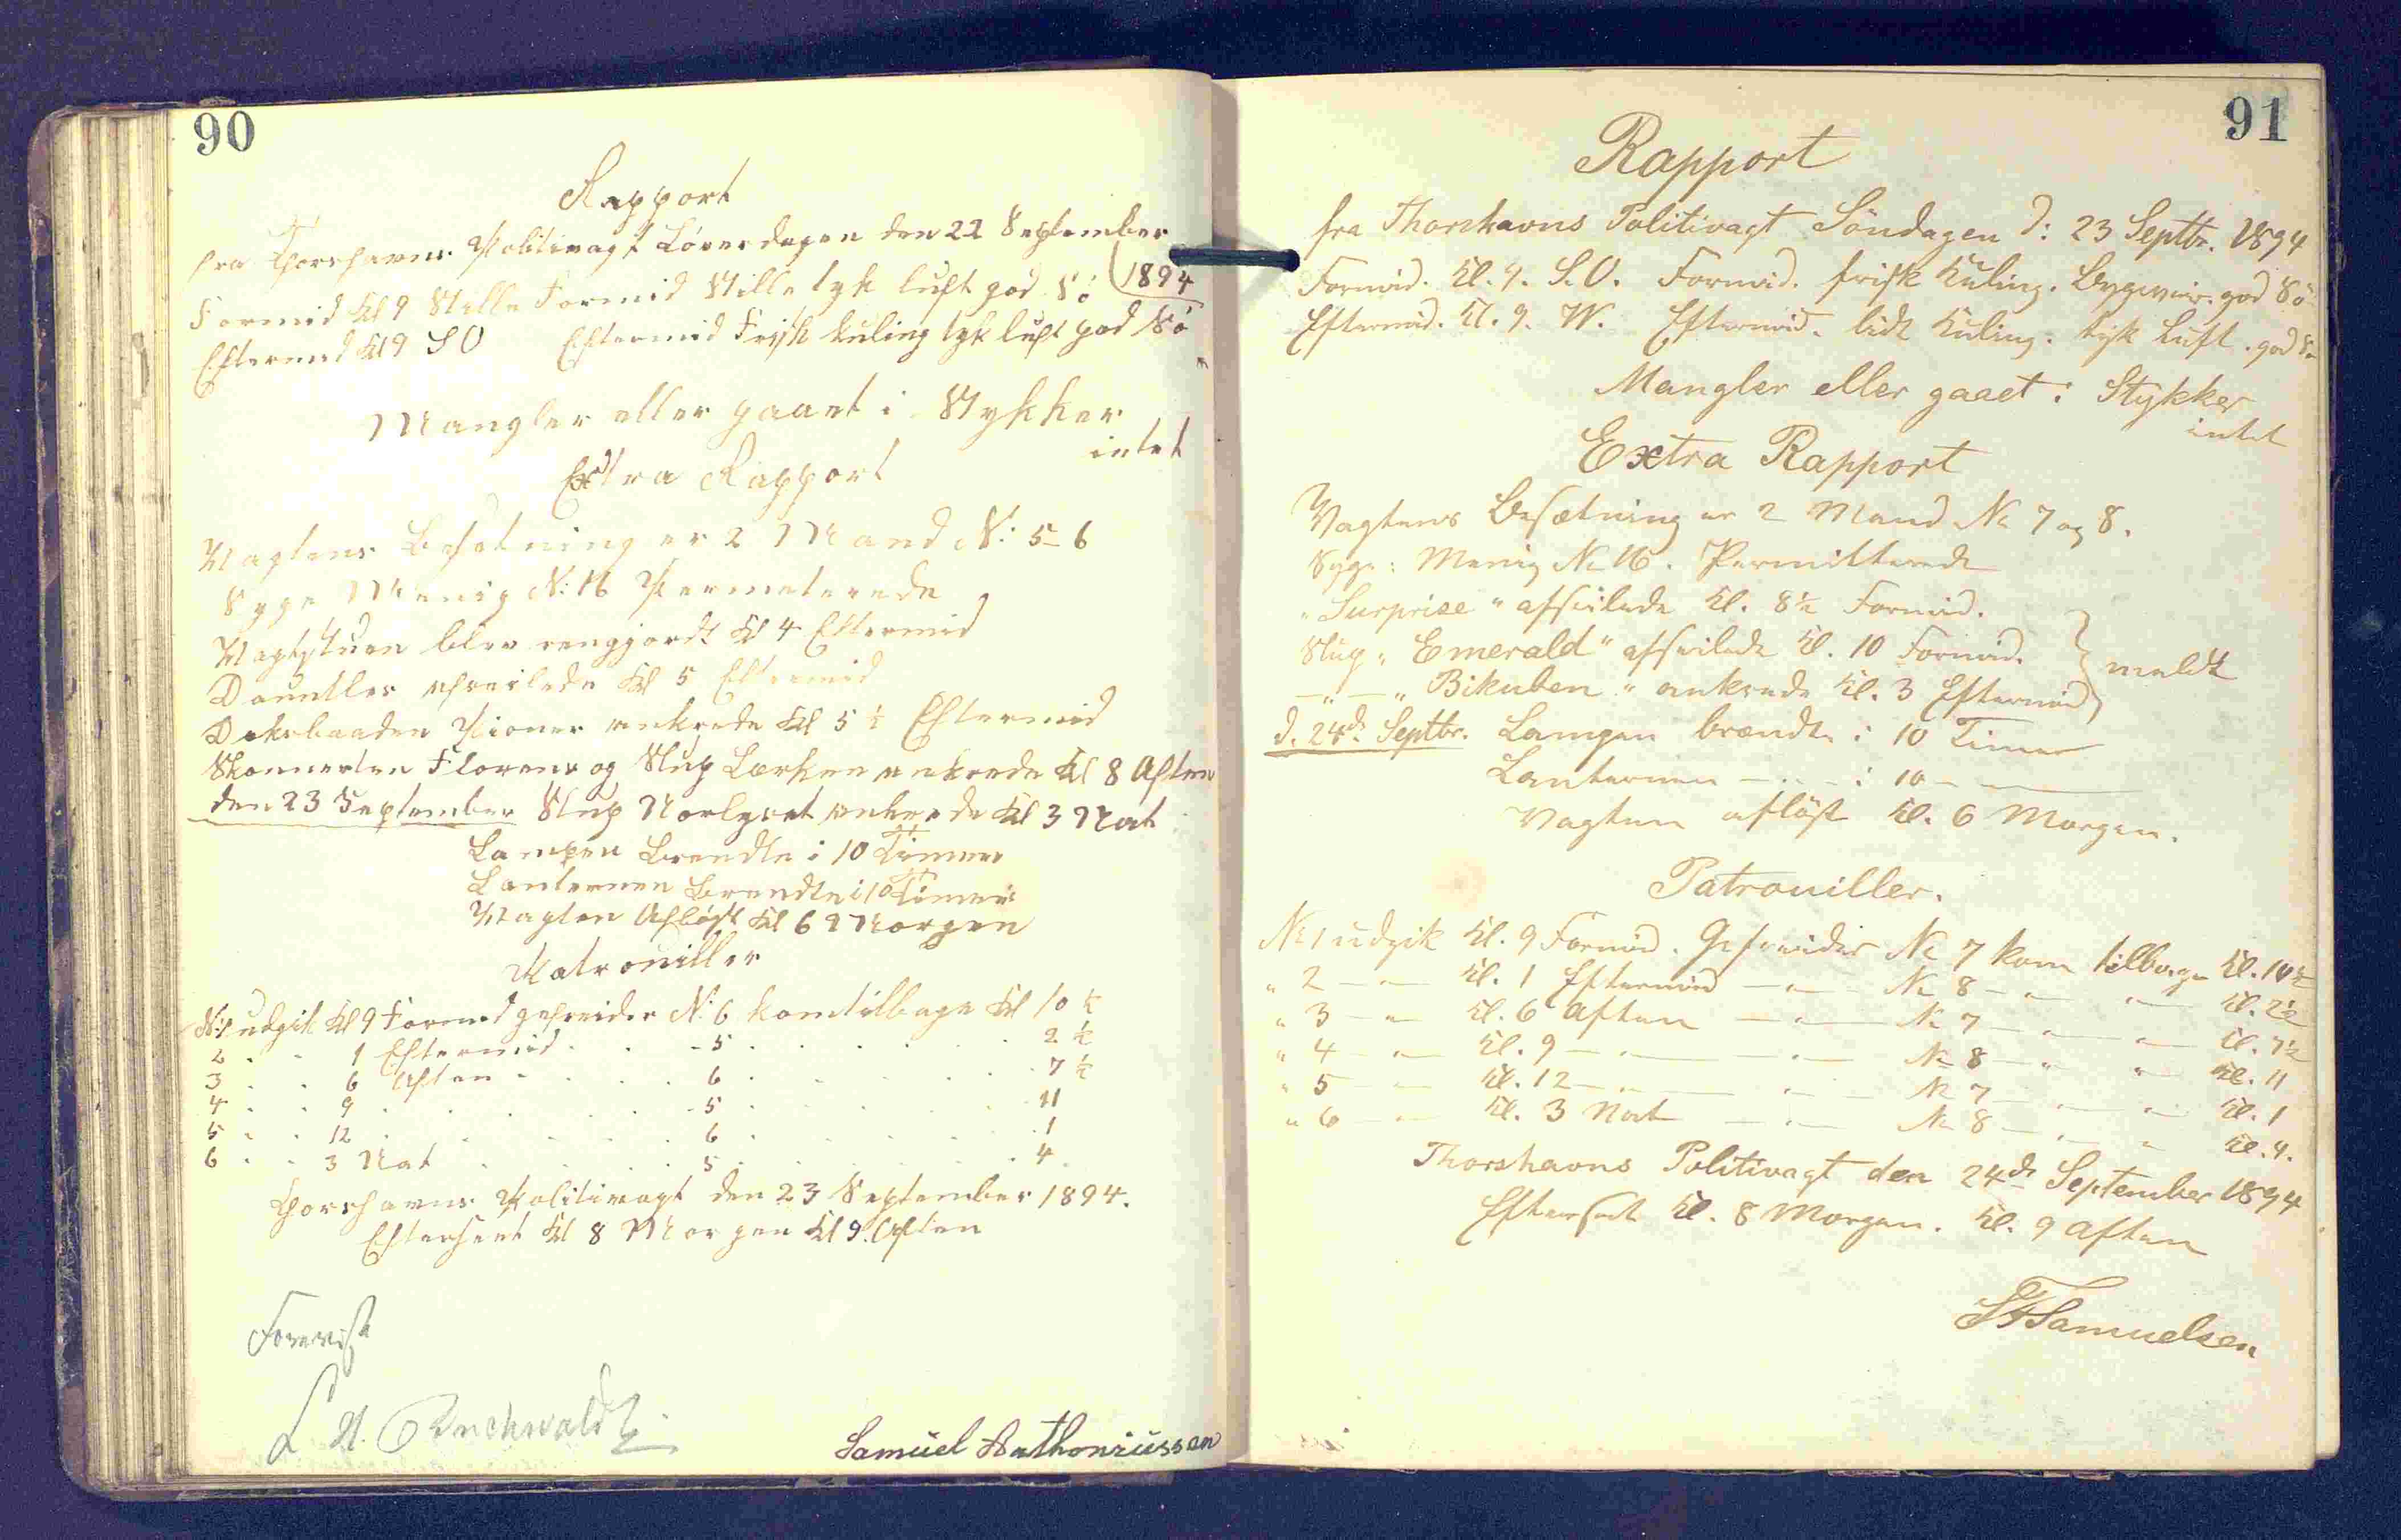 90
Rapport
fra Thorshavns Politivagt Löverdagen den 22 September
1894
Formid Kl 9 Stille Formid Stille tyk luft god Sö
Eftermid Kl 9 SO Eftermid Frisk kuling tyk luft god Sö
Mangler eller gaaet i Stykker
intet
Extra Rapport
Vagtens Besetning er 2 Mand N: 5-6
Syge Menig N: 16 Permeterede
Vagtstuen blev rengjordt Kl 4 Eftermid
Dauntles afseilede Kl 5 Eftermid
Deksbaaden Pioner ankrede Kl 5 ½ Eftermid
Skonnerten Florens og Slup Lærken ankrede Kl 8 Aften
den 23 September Slup Norlyset ankrede Kl 3 Nat
Lampen Brendte i 10 Timer
Lanternen Brendte i 10 Timer
Vagten Aflöst Kl 6 Morgen
Patrouiller
N:1 udgik Kl 9 Formid gefreider N: 6 kom tilbage Kl 10 ½
2 " " 1 Eftermid " " - 5 " " " 2 ½
3 " " 6 Aften " " " 6 " " " 7 ½
4 " " 9 " " " - 5 " " " 11
5 " " 12 " " " 6 " " " 1
6 " " 3 Nat " " " 5 " " " 4
Thorshavns Politivagt den 23 September 1894.
Efterseet Kl 8 Morgen Kl 9 Aften
Forevist
Buchwaldt
Samuel Anthoniussen
91
Rapport
fra Thorshavns Politivagt Söndagen d: 23 Septbr. 1894
Formid. Kl. 9. S.O. Formid. frisk Kuling. Bygeveir. god Sö
Eftermid. Kl. 9. W. Eftermid. lidt Kuling. tyk Luft. god Sö
Mangler eller gaaet i Stykker
intet
Extra Rapport
Vagtens Besætning er 2 Mand No 7 og 8.
Syge: Menig No 16. Permitterede
"Surprise" afseilede Kl. 8½ Formid.
Slup "Emerald" afseilede Kl. 10 Formid.
— " — "Bikuben" ankrede Kl. 3 Eftermid } meldt
d. 24de Septbr. Lampen brændte i 10 Timer
Lanternen — " — i 10 — " —
Vagten aflöst Kl. 6 Morgen.
Patrouiller.
No 1 udgik Kl. 9 Formid. Gefreider No 7 kom tilbage Kl. 10½
" 2 — " — Kl. 1 Eftermid — " — No 8 — " — " — Kl. 2½
" 3 — " — Kl. 6 Aften — " — No 7 — " — " — Kl. 7½
" 4 — " — Kl. 9 — " — — " — No 8 — " — " — Kl. 11
" 5 — " — Kl. 12 — " — — " — No 7 — " — " — Kl. 1
" 6 — " — Kl. 3 Nat — " — No 8 — " — " — Kl. 4.
Thorshavns Politivagt den 24de September 1894
Efterseet Kl. 8 Morgen. Kl. 9 Aften
Samuelsen